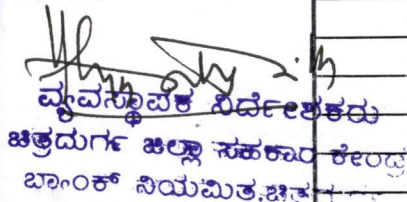 ವ್ಯವಸ್ಥಾಪಕ ನಿರ್ದೇಶಕರು
ಚಿತ್ರದುರ್ಗ ಜಿಲ್ಲಾ ಸಹಕಾರ ಕೇಂದ್ರ
ಬ್ಯಾಂಕ್ ನಿಯಮಿತ.